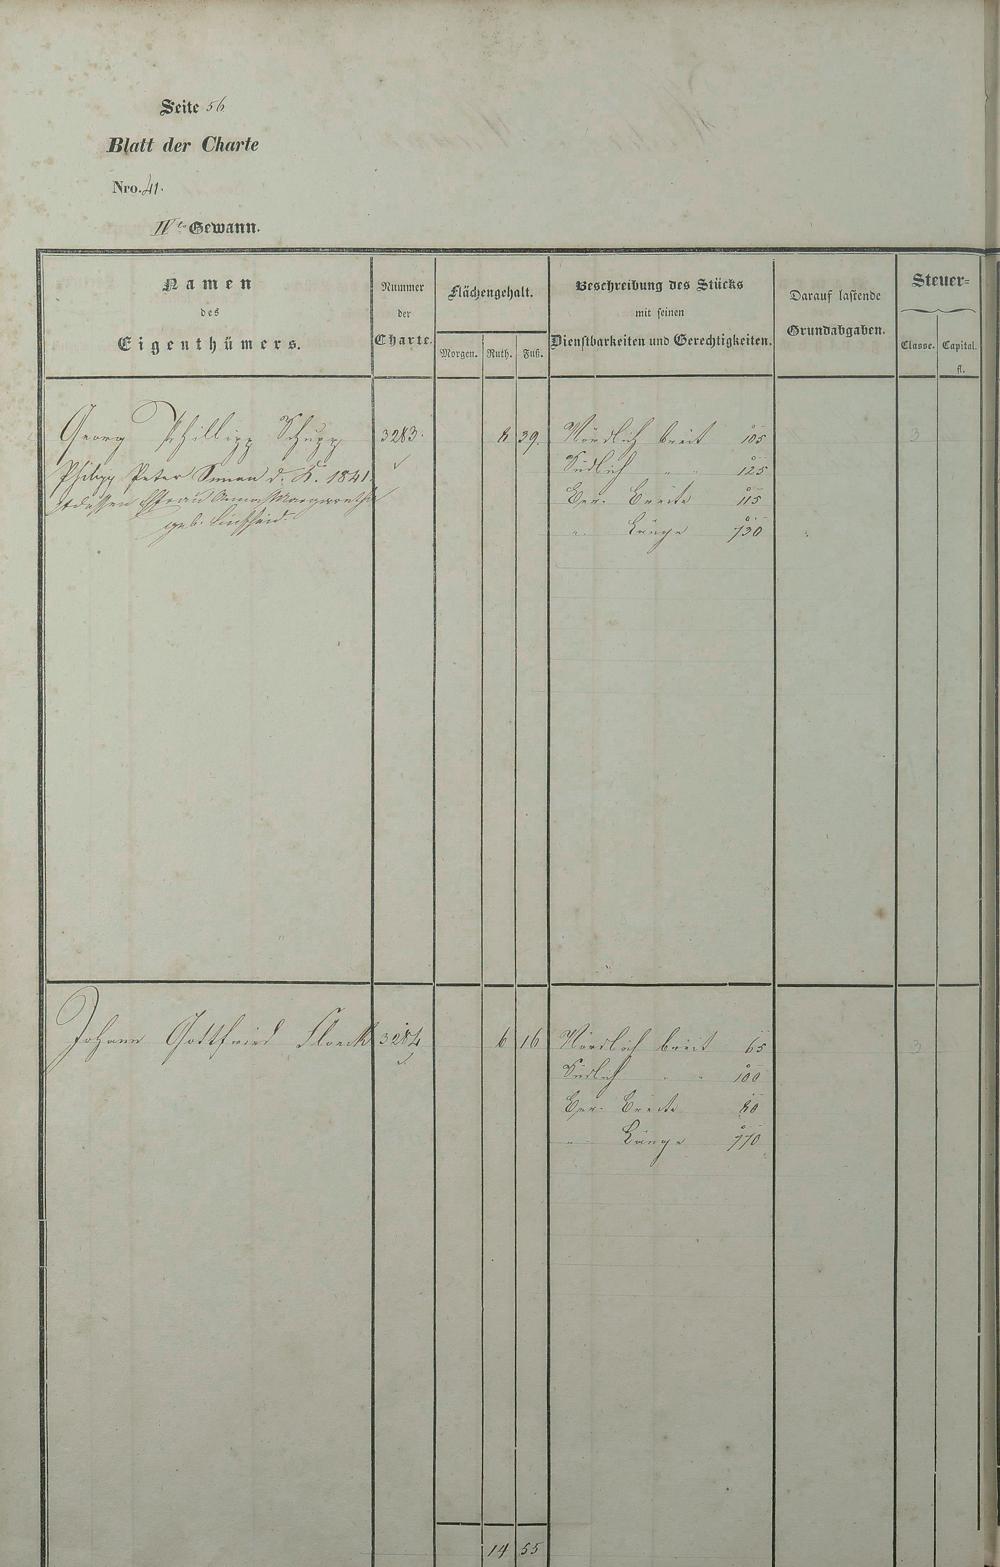 Seite 56
Blatt der Charte
Nro. 41.
IVte Gewann.
Namen
des
Eigenthümers.
Nummer
der
Charte.
Flächengehalt.
Morgen. Ruth. Fuß.
Beschreibung des Stücks
mit seinen
Dienstbarkeiten und Gerechtigkeiten.
Darauf lastende
Grundabgaben.
Steuer-
Classe. Capital.
fl.
Georg Phillipp Schupp 3283. 8 39. Nördlich breit 105 3
Philipp Peter Simon d. K. 1841 Südlich " " 125
Ehefrau Anna Margaretha Ger. Breite 115
geb. " Länge 730
Johann Gottfried Floeck 3284 6 16 Nördlich breit 65 3
Südlich " " 100
Ger. Breite 80
" Länge 770
14 55